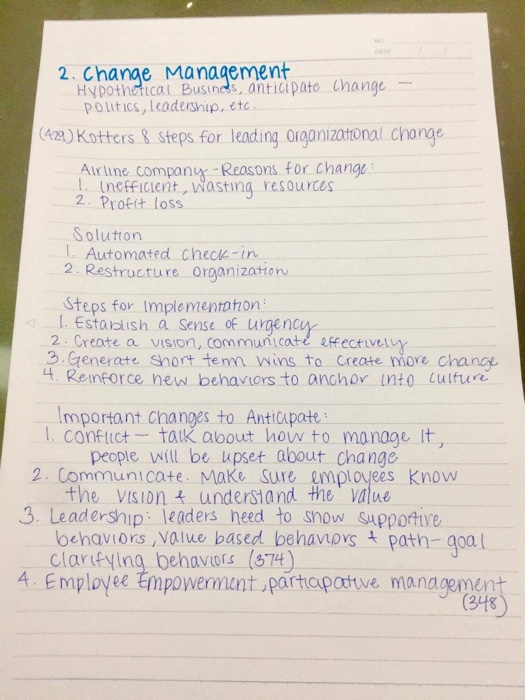 NO.
DATE / /
2. Change Management
Hypothetical Business, anticipate change —
politics, leadership, etc.
(429) Kotters 8 steps for leading organizational change
Airline company - Reasons for change:
1. Inefficient, wasting resources
2. Profit loss
Solution
1. Automated check-in
2. Restructure organization
Steps for Implementation:
1. Establish a sense of urgency
2. Create a vision, communicate effectively
3. Generate short term wins to create more change
4. Reinforce new behaviors to anchor into culture
Important changes to Anticipate:
1. conflict — talk about how to manage it,
people will be upset about change
2. Communicate. Make sure employees know
the vision & understand the value
3. Leadership: leaders need to show supportive
behaviors, value based behaviors & path-goal
clarifying behaviors (374)
4. Employee Empowerment, participative management
(348)